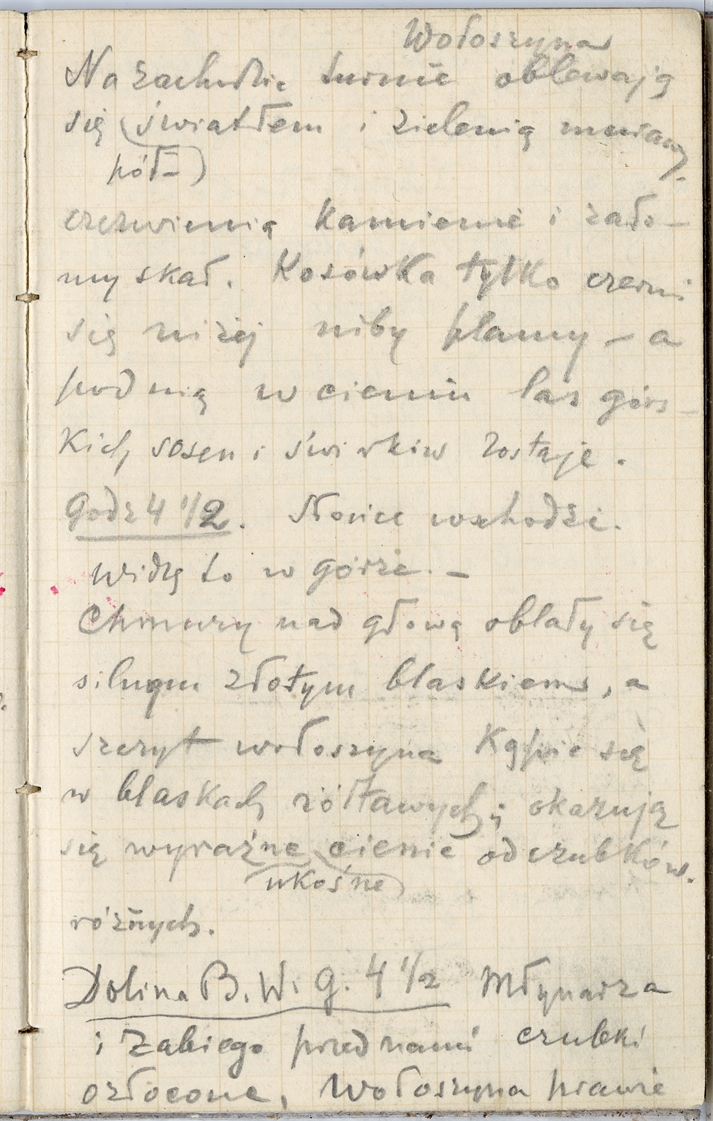 Wołoszyna
Na zachodzie turnie oblewają
się (światłem i zielenią
pół-)
czerwienią kamienie i zało-
my skał. Kosówka tylko czerni
się niżej niby plamy – a
pod nią w cieniu las górs-
kich sosen i świrków zostaje.
Godz 4 1/2. Słońce wschodzi.
Widzę to w górze. –
Chmury nad głową oblały się
silnym złotym blaskiem, a
szczyt wołoszyna kąpie się
w blaskach żółtawych; okazują
się wyraźne cienie od czubków.
ukośne
różnych.
Dolina B. W. g. 4 1/2 Młynarza
i Żabiego przed nami czubki
ozłocone, Wołoszyna prawie